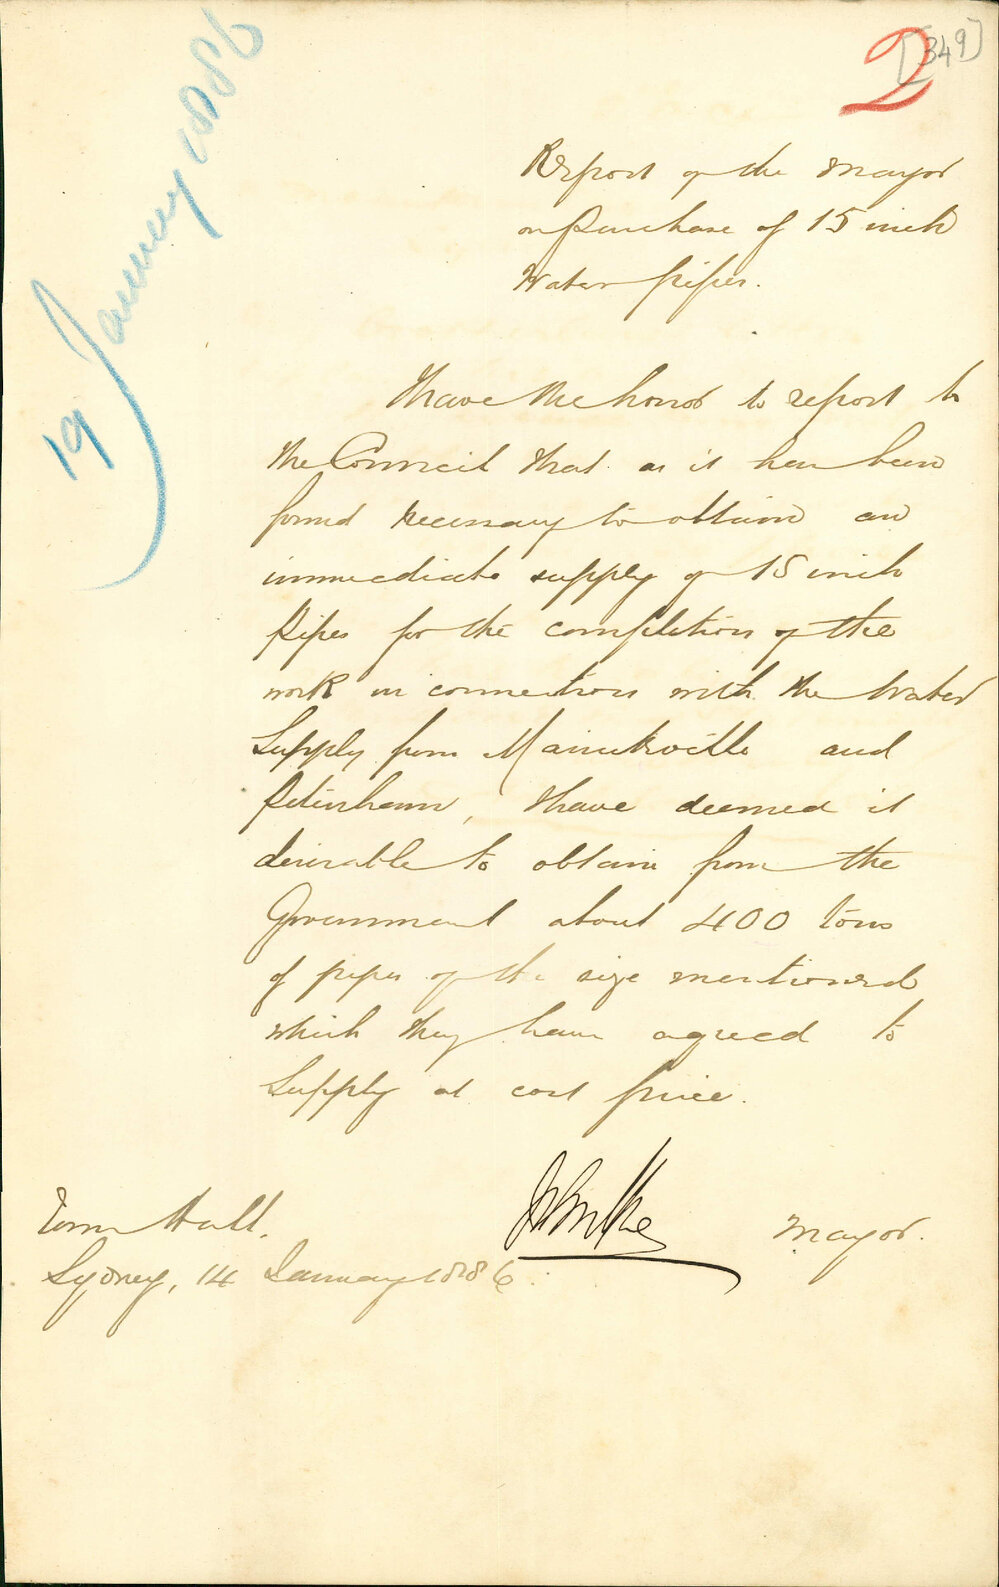 2 [349]
19 January 1886
Report of the Mayor
on Purchase of 15 inch
Water pipes.
I have the honor to report to
the Council that as it has been
found necessary to obtain an
immediate supply of 15 inch
Pipes for the completion of the
work in connection with the Water
Supply from Marrickville and
Petersham, I have deemed it
desirable to obtain from the
Government about 400 tons
of pipes of the size mentioned
which they have agreed to
Supply at cost price.
Mayor.
Town Hall.
Sydney, 14 January 1886.